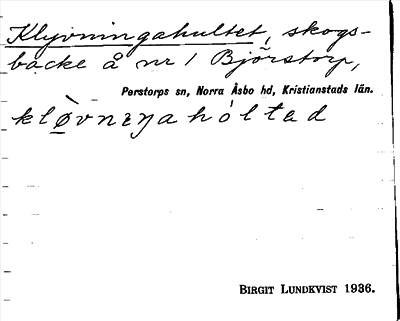 Klyvningahultet, skogs-
backe å nr 1 Björstorp,
Perstorps sn, Norra Åsbo hd, Kristianstads län.
kløvnɪŋaholtəd
BIRGIT LUNDKVIST 1936.